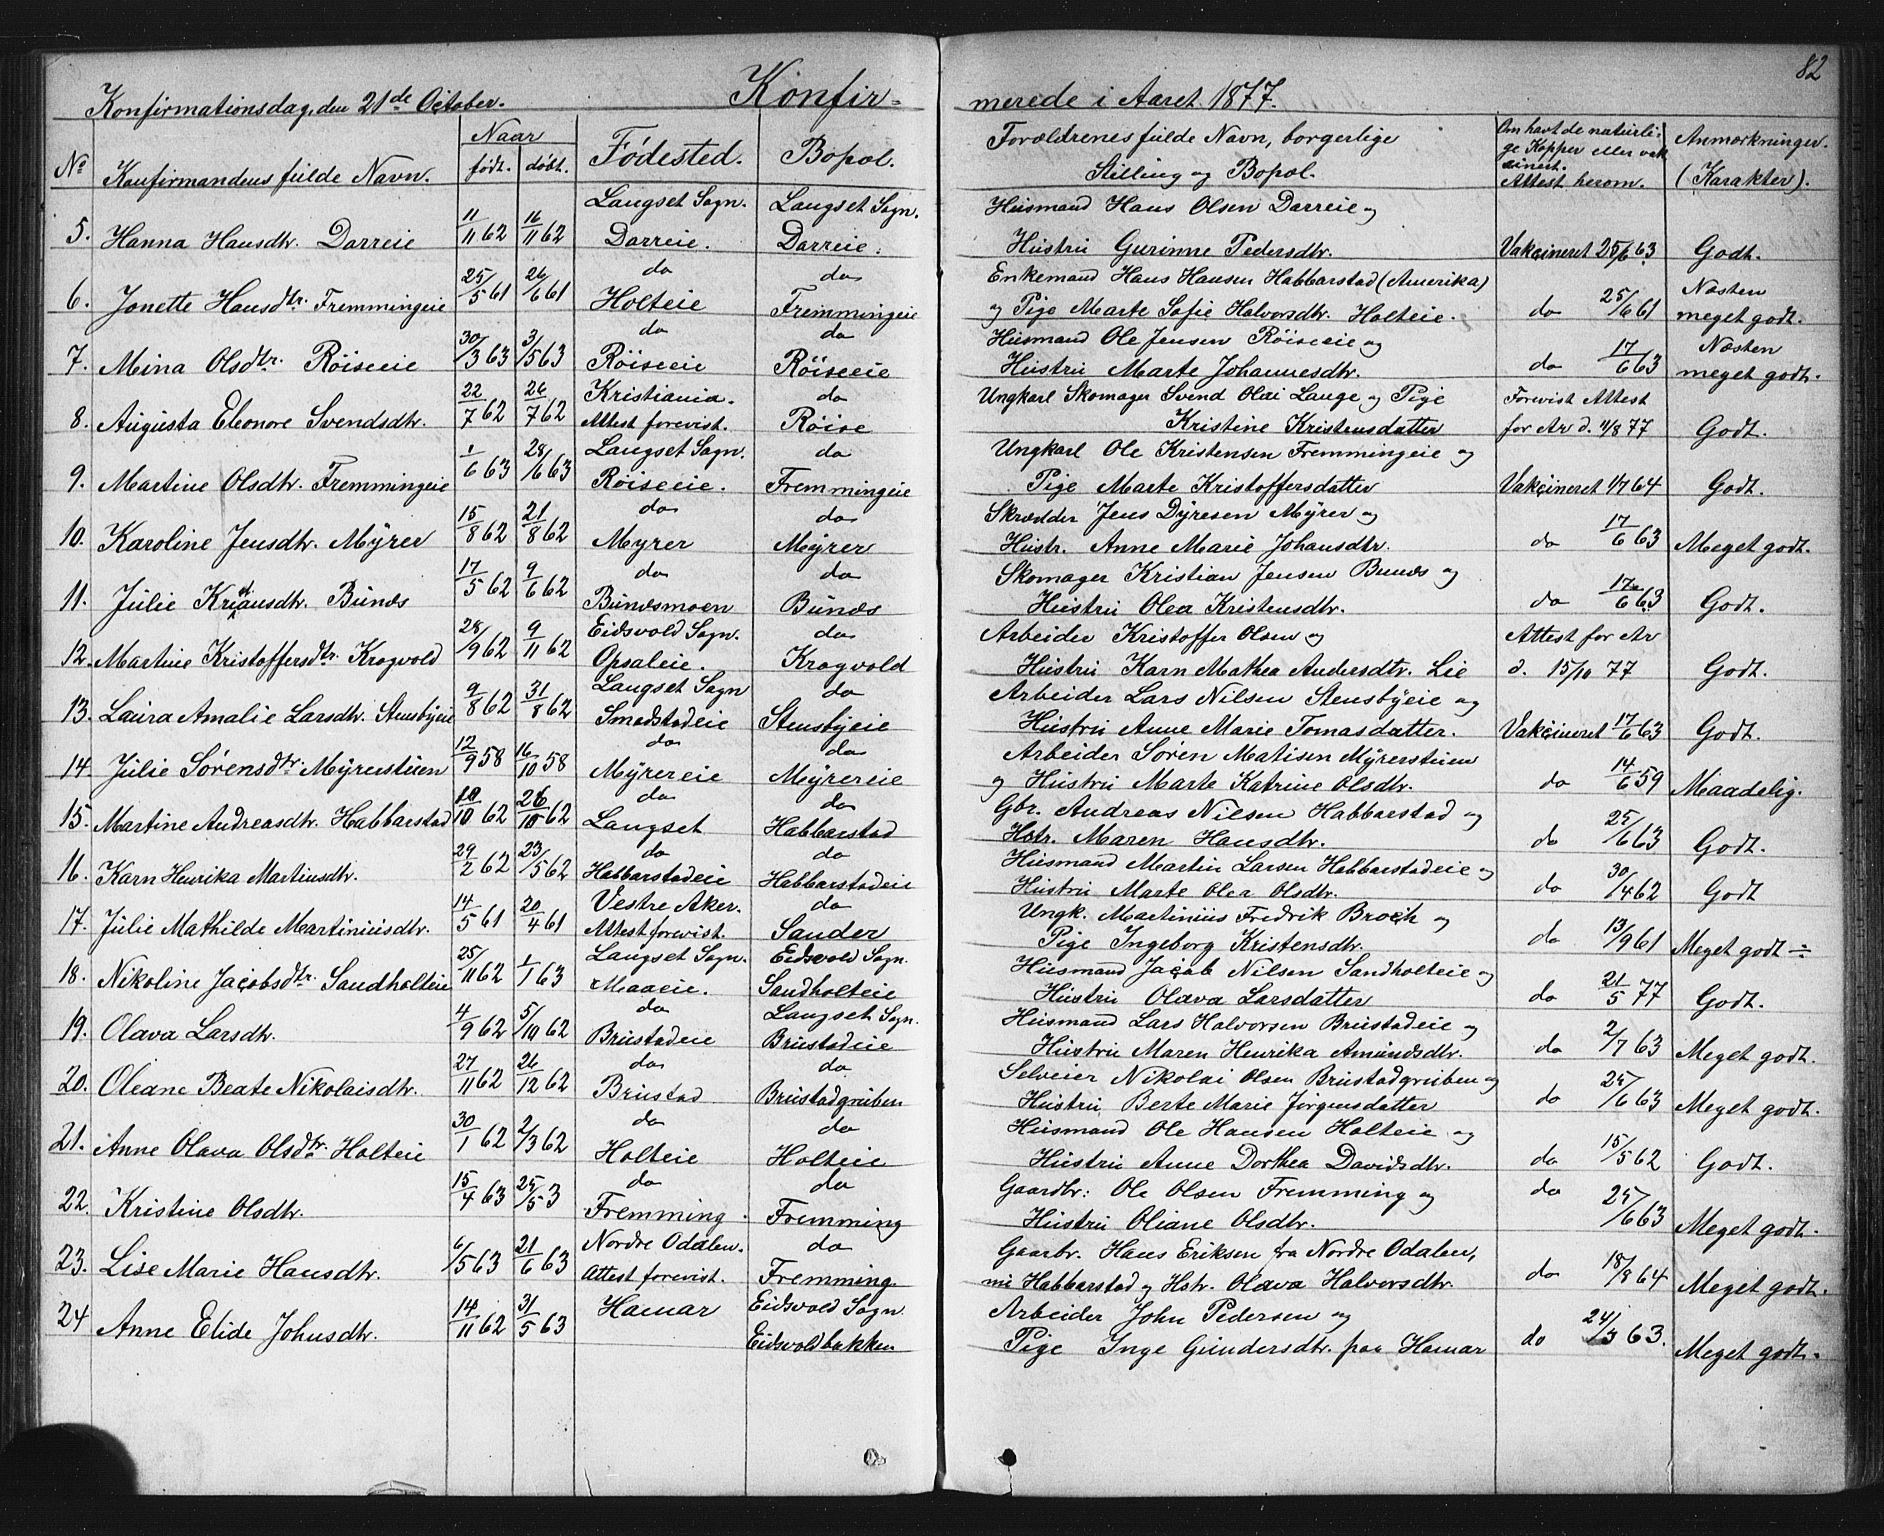 82
Konfirmationsdag, den 21de October. Konfir- merede i Aaret 1877.
No Konfirmandens fulde Navn. Naar født. døbt. Fødested. Bopæl. Forældrenes fulde Navn, borgerlige Stilling og Bopæl. Om havt de naturlige Kopper eller vakcinert. Attest herom. Anmærkninger. (Karakter).
5. Hanna Hansdtr. Darreie 11/11 62 16/11 62 Langset Sogn. Darreie. Langset Sogn. Darreie. Husmand Hans Olsen Darreie og
Hustru Gurinne Pedersdtr. Vakcineret 25/6 63 Godt.
6. Jonette Hansdtr. Fremmingeie 25/5 61 26/6 61 do Holteie do Fremmingeie Enkemand Hans Hansen Habbarstad (Amerika)
og Pige Marte Sofie Halvorsdtr. Holteie. do 25/6 61 Næsten meget godt.
7. Meina Olsdtr. Röiseeie 30/3 63 3/5 63 do Röiseeie do Röiseeie Husmand Ole Jensen Röiseeie og
Hustru Marte Johannesdtr. do 17/6 63 Næsten meget godt.
8. Augusta Eleonore Svendsdtr. 22/7 62 26/7 62 Kristiania. Attest forevist. do Röise Ungkarl Skomager Svend Olai Lange og Pige
Kristine Kristensdatter Forevist Attest for Ar d. 11/8 77 Godt.
9. Martine Olsdtr. Fremmingeie 1/6 63 28/6 63 Langset Sogn. Röiseeie. do Fremmingeie Ungkarl Ole Kristensen Fremmingeie og
Pige Marte Kristoffersdatter Vakcineret 1/7 64 Godt.
10. Karoline Jensdtr. Myrer 15/8 62 21/8 62 do Myrer do Myrer Skrædder Jens Dyresen Myrer og
Hustr. Anne Marie Johansdtr. do 17/6 63 Meget godt.
11. Julie Kristiansdtr. Bunæs 17/5 62 9/6 62 do Bunæsmoen do Bunæs Skomager Kristian Jensen Bunæs og
Hustru Olea Kristensdtr. do 17/6 63 Godt.
12. Martine Kristoffersdtr. Krogvold 28/9 62 9/11 62 Eidsvold Sogn. Opsaleie. do Krogvold Arbeider Kristoffer Olsen og
Hustru Karn Mathea Andersdtr. Lie Attest for Ar d. 15/10 77 Godt.
13. Laura Amalie Larsdtr. Stensbyeie 9/8 62 31/8 62 Langset Sogn Smedstadeie do Stensbyeie Arbeider Lars Nilsen Stensbyeie og
Hustru Anne Marie Tomasdatter. Vakcineret 17/6 63 Godt.
14. Julie Sørensdtr. Myrerstuen 12/9 58 16/10 58 do Myrereie do Myrereie Arbeider Søren Matisen Myrerstuen
og Hustru Marte Katrine Olsdtr. do 14/6 59 Maadelig.
15. Martine Andreasdtr. Habbarstad 10/10 62 26/10 62 do Langset do Habbarstad Gbr. Andreas Nilsen Habbarstad og
Hstr. Maren Hansdtr. do 25/6 63 Godt.
16. Karn Henrika Martinsdtr. 29/2 62 23/5 62 do Habbarstadeie do Habbarstadeie Husmand Martin Larsen Habbarstadeie og
Hustru Marte Olea Olsdtr. do 30/4 62 Godt
17. Julie Mathilde Martiniusdtr. 14/5 61 20/4 61 Vestre Aker. Attest forevist. do Sander Ungk. Martinius Fredrik Broch og
Pige Ingeborg Kristensdtr. do 13/9 61 Meget godt ÷
18. Nikoline Jacobsdtr. Sandholteie 25/11 62 1/1 63 Langset Sogn. Maaeie. Eidsvold Sogn. Sandholteie Husmand Jacob Nilsen Sandholteie og
Hustru Olava Larsdatter do 21/5 77 Godt.
19. Olava Larsdtr. 4/9 62 5/10 62 do Brustadeie Langset Sogn. Brustadeie Husmand Lars Halvorsen Brustadeie og
Hustru Maren Henrika Amundsdtr. do 2/7 63 Meget godt.
20. Oleane Beate Nikolaisdtr. 27/11 62 26/12 62 do Brustad do Brustadgruben Selveier Nikolai Olsen Brustadgruben og
Hustru Berte Marie Jørgensdatter do 25/6 63 Meget godt.
21. Anne Olava Olsdtr. Holteie 30/1 62 2/3 62 do Holteie do Holteie Husmand Ole Hansen Holteie og
Hustru Anne Dorthea Davidsdtr. do 15/5 62 Godt.
22. Kristine Olsdtr. 15/4 63 25/5 3 do Fremming do Fremming Gaardbr: Ole Olsen Fremming og
Hustru Oliane Olsdtr. do 25/6 63 Meget godt.
23. Lise Marie Hansdtr. 6/5 63 21/6 63 Nordre Odalen. Attest forevist. do Fremming. Gaarbr. Hans Eriksen fra Nordre Odalen,
nu Habbarstad og Hstr. Olava Halvorsdtr. do 18/8 64 Meget godt.
24 Anne Elide Johnsdtr. 14/11 62 31/5 63 Hamar Eidsvold Sogn Eidsvoldbakken Arbeider John Pedersen og
Pige Inge Gundersdtr. paa Hamar do 24/5 63. Meget godt.